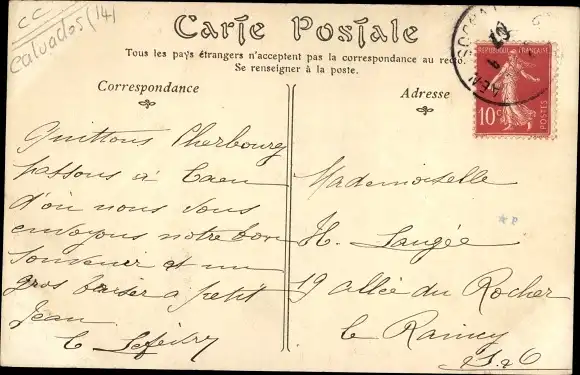 CC
Calvados (14)
Carte Postale
Tous les pays étrangers n'acceptent pas la correspondance au recto
Se renseigner à la poste.
Correspondance
Adresse
REPUBLIQUE FRANÇAISE
10c
POSTES
Quittons Cherbourg
passons à Caen
d'où nous vous
envoyons notre bon
souvenir et un
gros baiser a petit
Jean
Mademoiselle
H. Laugée
19 allée du Rocher
le Raincy
S. & O